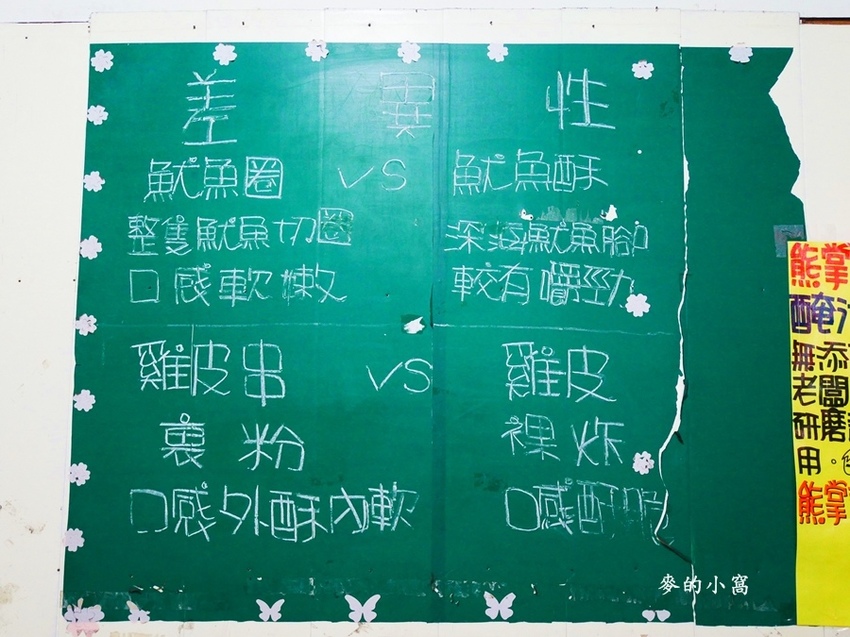 差異性
魷魚圈 VS 魷魚酥
整隻魷魚切圈 深海魷魚腳
口感軟嫩 較有嚼勁
雞皮串 VS 雞皮
裹粉 裸炸
口感外酥內軟 口感酥脆
熊掌
醃
無添
老闆
研磨
用。
熊掌
麥的小窩